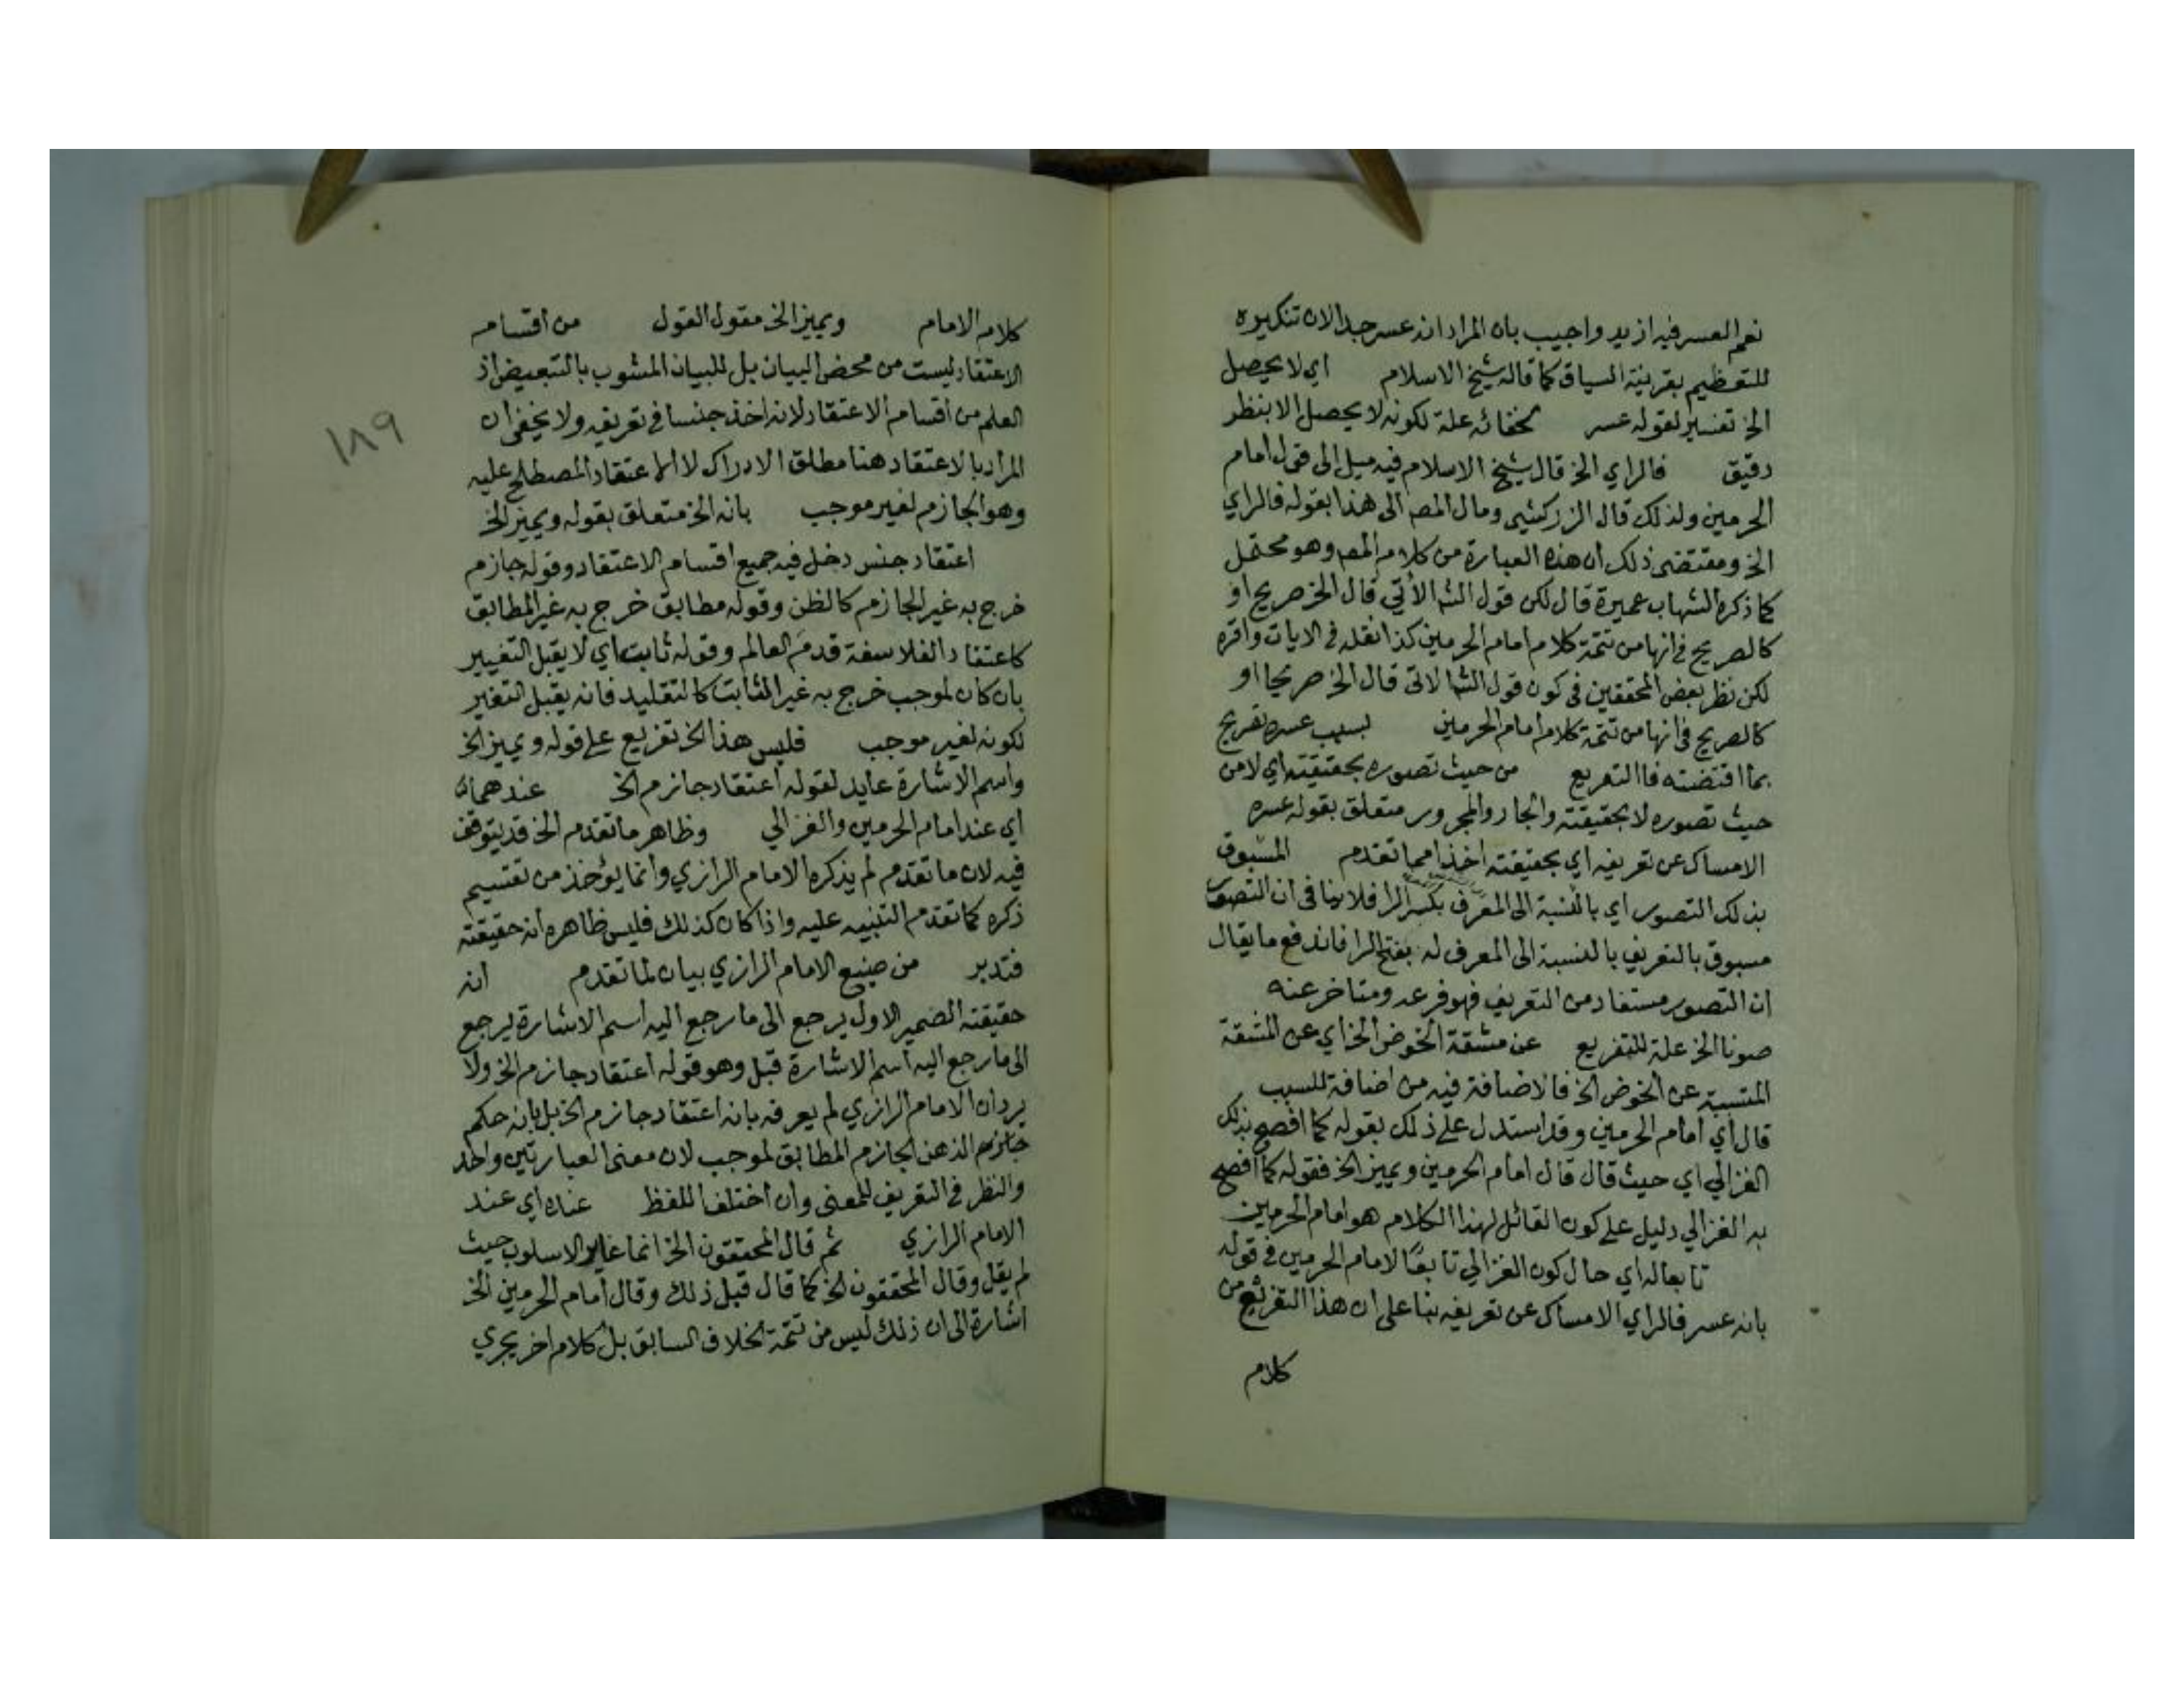 نعم العسر فيه ازيد واجيب بان المراد انه عسر جدا لان تنكيره
للتعظيم بقرينة السياق كما قاله شيخ الاسلام اي لا يحصل
الخ تفسير لقوله عسر لخفائه علة لكونه لا يحصل الا بنظر
دقيق فالراي الخ قال شيخ الاسلام فيه ميل الى قول امام
الحرمين ولذلك قال الزركشي ومال المصـ الى هذا بقوله فالراي
الخ ومقتضى ذلك ان هذه العبارة من كلام المصـ وهو محتمل
كما ذكره الشهاب عميرة قال لكن قول الشـ الأتي قال الخ صريح او
كالصريح في انها من تتمة كلام امام الحرمين كذا نقله في الايات واقره
لكن نظر بعض المحققين في كون قول الشـ الاتى قال الخ صريحا او
كالصريح في انها من تتمة كلام امام الحرمين بسبب عسره تصريح
بما اقتضته فاالتفريع من حيث تصوره بحقيقته اي لا من
حيث تصوره لا بحقيقته والجار والمجرور متعلق بقوله عسره
الامساك عن تعريفه اي بحقيقته اخذا مما تقدم المسبوق
بذلك التصور اي بالنسبة الى المعرف بكسر الرا فلا ينافى ان التصور
مسبوق بالتعريف بالنسبة الى المعرف له بفتح الرا فاندفع ما يقال
ان التصور مستفاد من التعريف فهو فرعه ومتاخر عنه
صونا الخ علة للتفريع عن مشقة الخوض الخ اي عن المشقة
المتسببة عن الخوض الخ فالاضافة فيه من اضافة للسبب
قال اي امام الحرمين وقد استدل على ذلك بقوله كما افصح بذلك
الغزالي اي حيث قال قال امام الحرمين ويميز الخ فقوله كما افصح
به الغزالي دليل على كون القائل لهذا الكلام هو امام الحرمين
تابعا له اي حال كون الغزالي تابعًا لامام الحرمين في قوله
بانه عسر فالراي الامساك عن تعريفه بنا على ان هذا التفريع من
كلام
كلام الامام ويميز الخ مقول القول من اقسام
الاعتقاد ليست من محض البيان بل للبيان المشوب بالتبعيض اذ
العلم من اقسام الاعتقاد لانه اخذ جنسا في تعريفه ولا يخفى ان
المراد بالاعتقاد هنا مطلق الادراك لا الاعتقاد المصطلح عليه
وهو الجازم لغير موجب بانه الخ متعلق بقوله ويميز الخ
اعتقاد جنس دخل فيه جميع اقسام الاعتقاد وقوله جازم
خرج به غير الجازم كالظن وقوله مطابق خرج به غير المطابق
كاعتقاد الفلاسفة قدم العالم وقوله ثابت اي لا يقبل التغيير
بان كان لموجب خرج به غير الثابت كالتقليد فانه يقبل التغير
لكونه لغير موجب فليس هذا الخ تفريع على قوله ويميز الخ
واسم الاشارة عايد لقوله اعتقاد جازم الخ عندهما
اي عند امام الحرمين والغزالي وظاهر ما تقدم الخ قد يتوقف
فيه لان ما تقدم لم يذكره الامام الرازي وانما يؤخذ من تقسيم
ذكره كما تقدم التنبيه عليه واذا كان كذلك فليس ظاهره انه حقيقته
فتدبر من صنيع الامام الرازي بيان لما تقدم انه
حقيقته الضمير الاول يرجع الى ما رجع اليه اسم الاشارة يرجع
الى ما رجع اليه اسم الاشارة قبل وهو قوله اعتقاد جازم الخ ولا
يرد ان الامام الرازي لم يعرفه بانه اعتقاد جازم الخ بل بانه حكم
الذهن الجازم المطابق لموجب لان معنى العبارتين واحد
والنظر في التعريف للمعنى وان اختلف اللفظ عنده اي عند
الامام الرازي ثم قال المحققون الخ انما غاير الاسلوب حيث
لم يقل وقال المحققون الخ كما قال قبل ذلك وقال امام الحرمين الخ
اشارة الى ان ذلك ليس من تتمة الخلاف السابق بل كلام اخر يجري
١٨٩